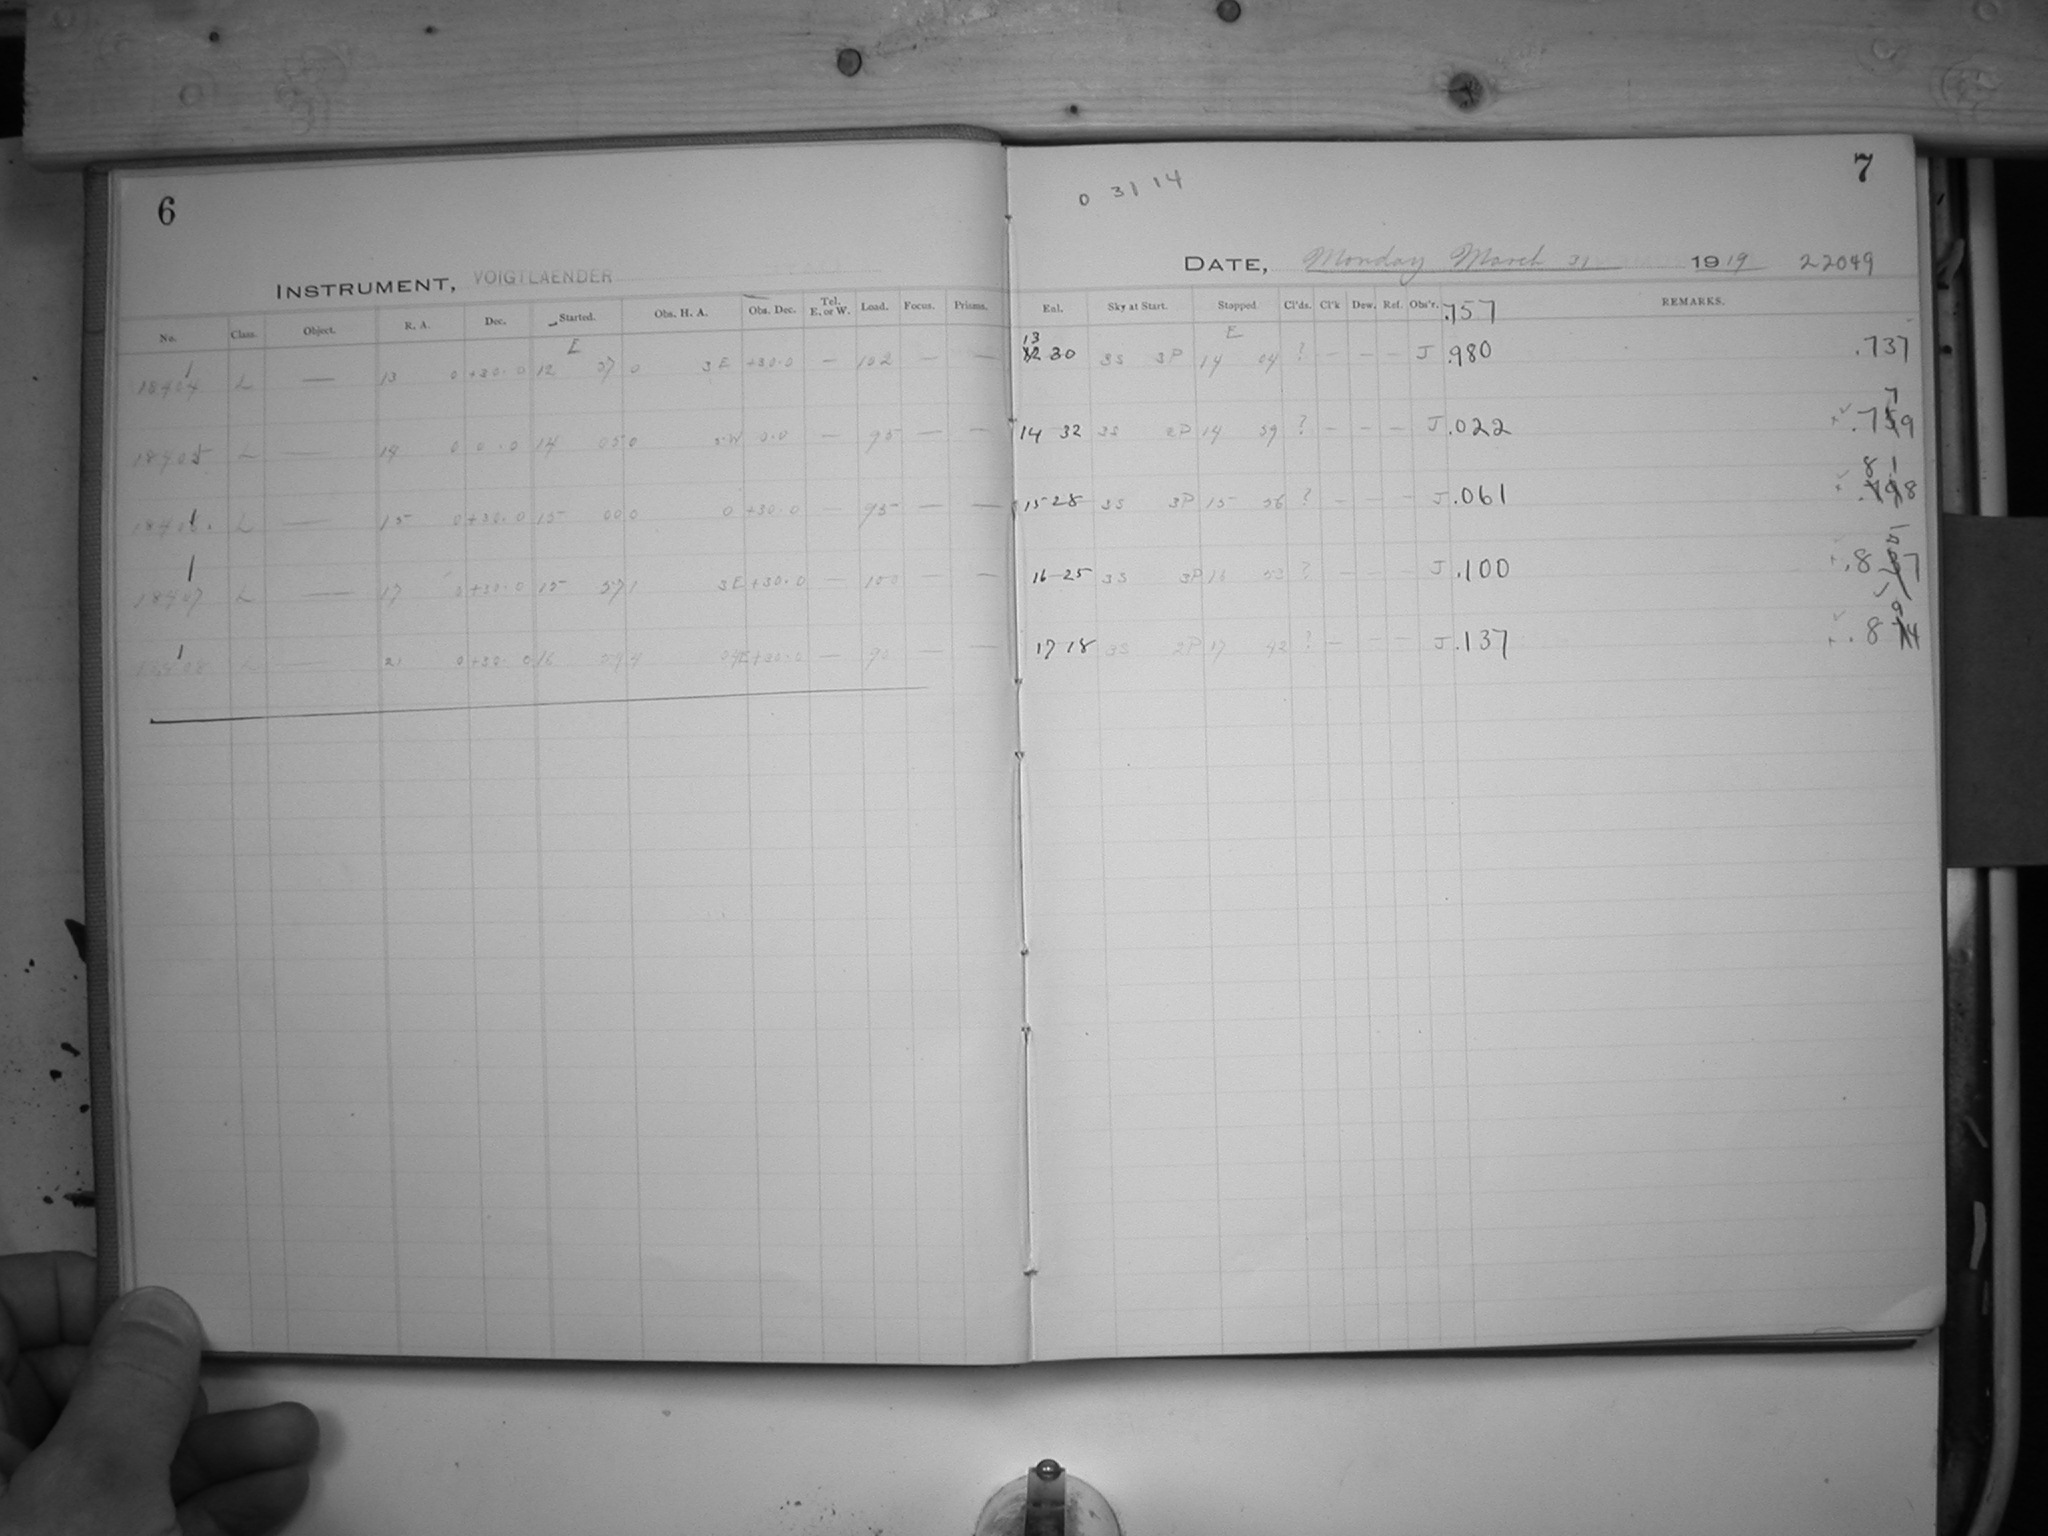 6
INSTRUMENT, VOIGTLAENDER
No. Class. Object. R. A. Dec. Started. Obs. H. A. Obs. Dec. Tel. E. or W. Load. Focus. Prisms.
E
18404 L — 13 0 +30.0 12 37 0 3 E +30.0 — 102 — —
18405 L — 14 0 0.0 14 05 0 0.0 — 95 — —
L — 15 0 +30.0 15 00 0 0 +30.0 — 95 — —
18407 L — 17 0 +30.0 15 57 1 3 E +30.0 — 100 — —
L — 21 0 +30.0 16 54 4 04E +30.0 — 90 — —
7
0 31 14
DATE, Monday March 31 1919 22049
Enl. Sky at Start. Stopped Cl'ds. Cl'k Dew. Ref. Obs'r. .757 REMARKS.
13 E
30 3S 3P 14 04 ? — — — J .980 .737
7
14 32 3S 2P 14 59 ? — — — J .022 .759
8 1
15 28 3S 3P 15 56 ? — — — J .061 .798
16 25 3S 3P 16 53 ? — — — J .100 .8 7
17 18 3S 2P 17 42 ? — — — J .137 .874